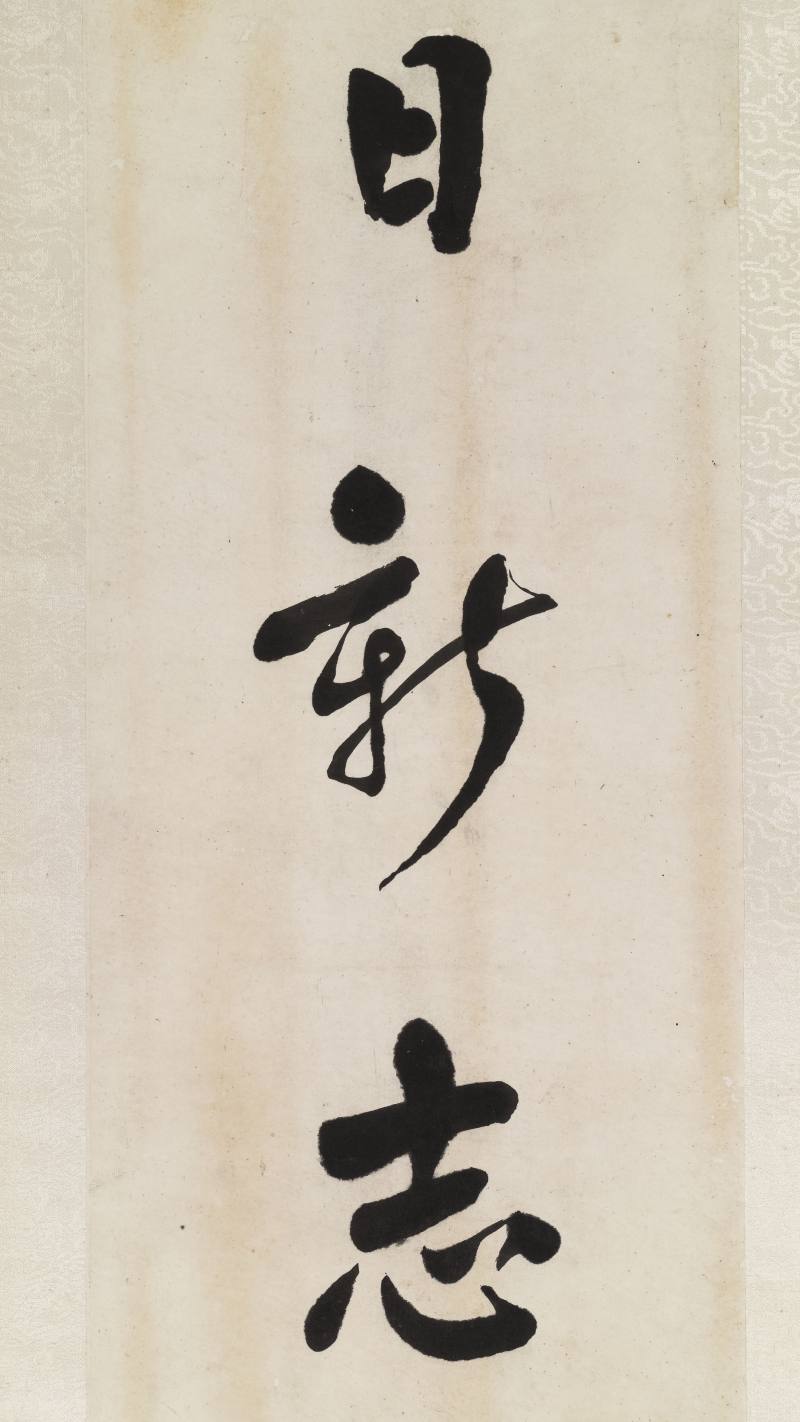 日新志